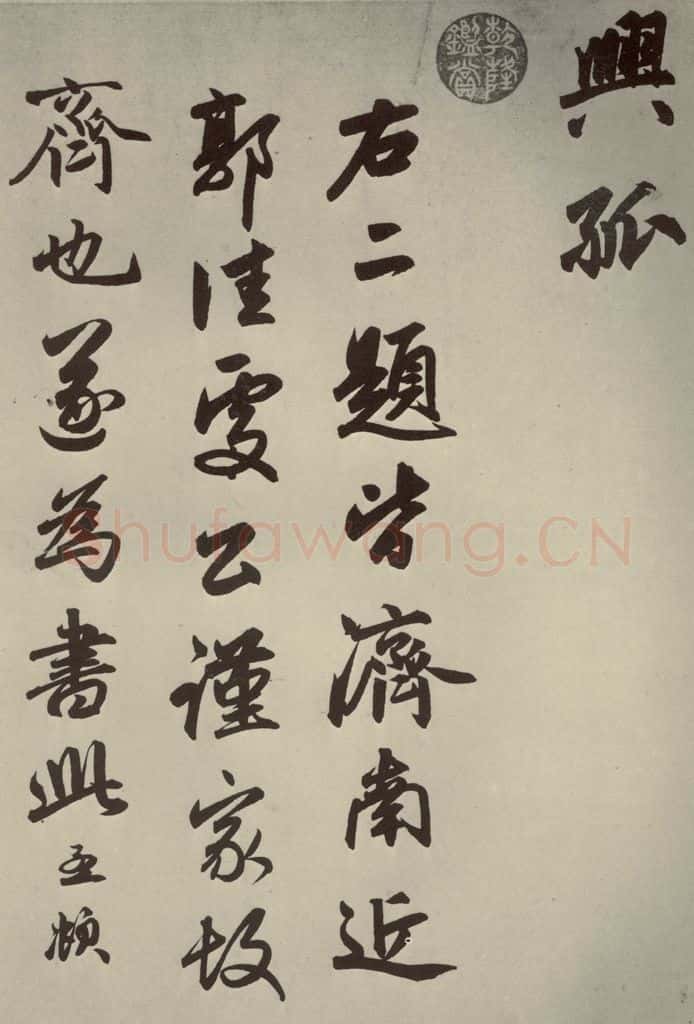 興孤
乾隆
鑑賞
右二題皆濟南近
郭佳處公謹家故
齊也遂為書此孟頫
Shufawang.CN